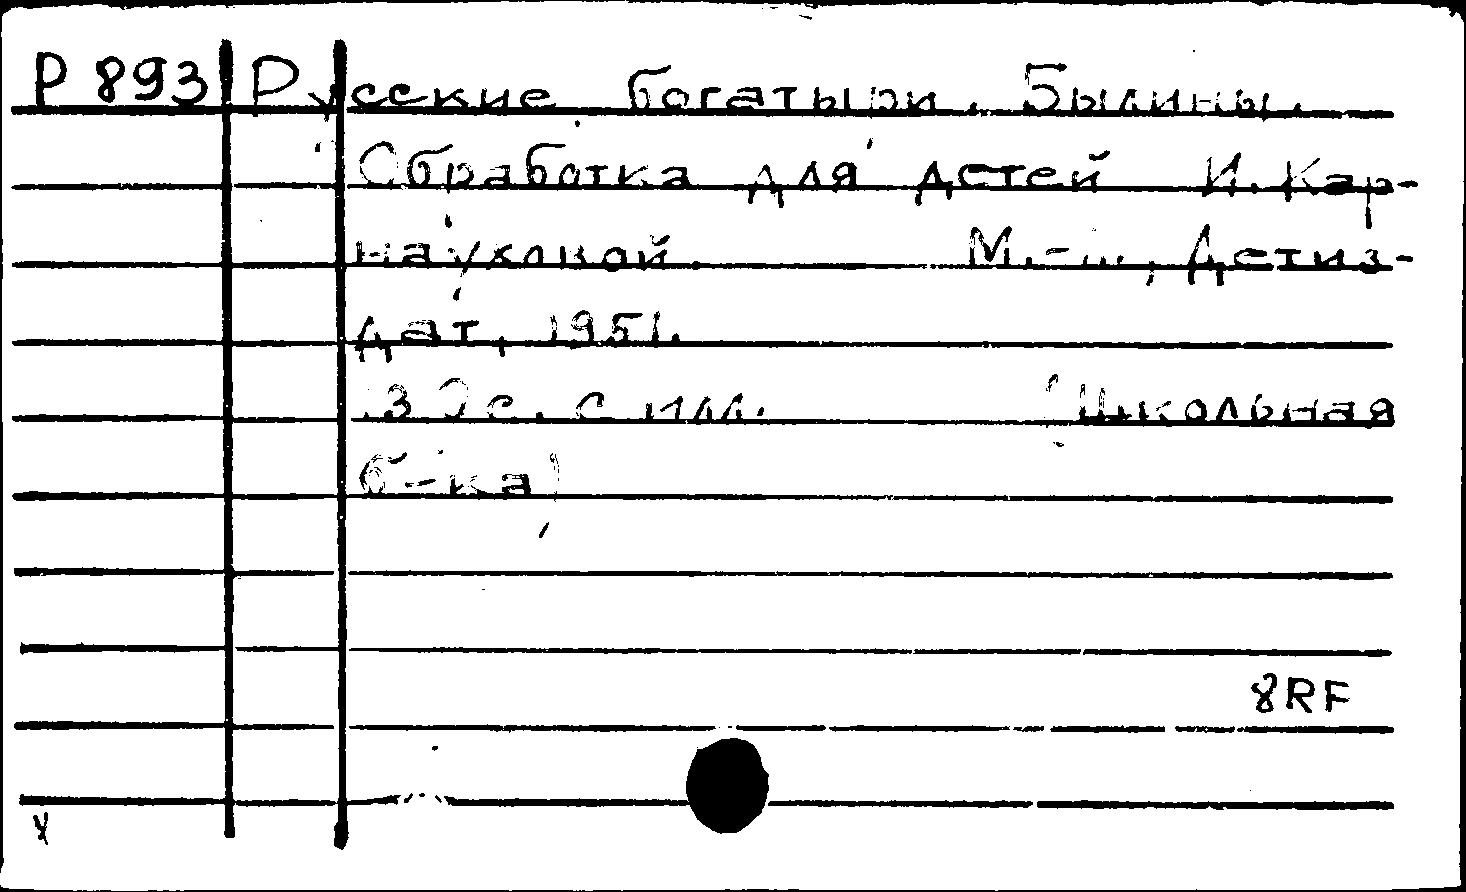 Р 893 Русские богатыри. Былины.
Обработка для детей И. Кар-
науховой. М.-Л., Детиз-
дат, 1951.
с. с илл. (Школьная
б-ка)
8RF